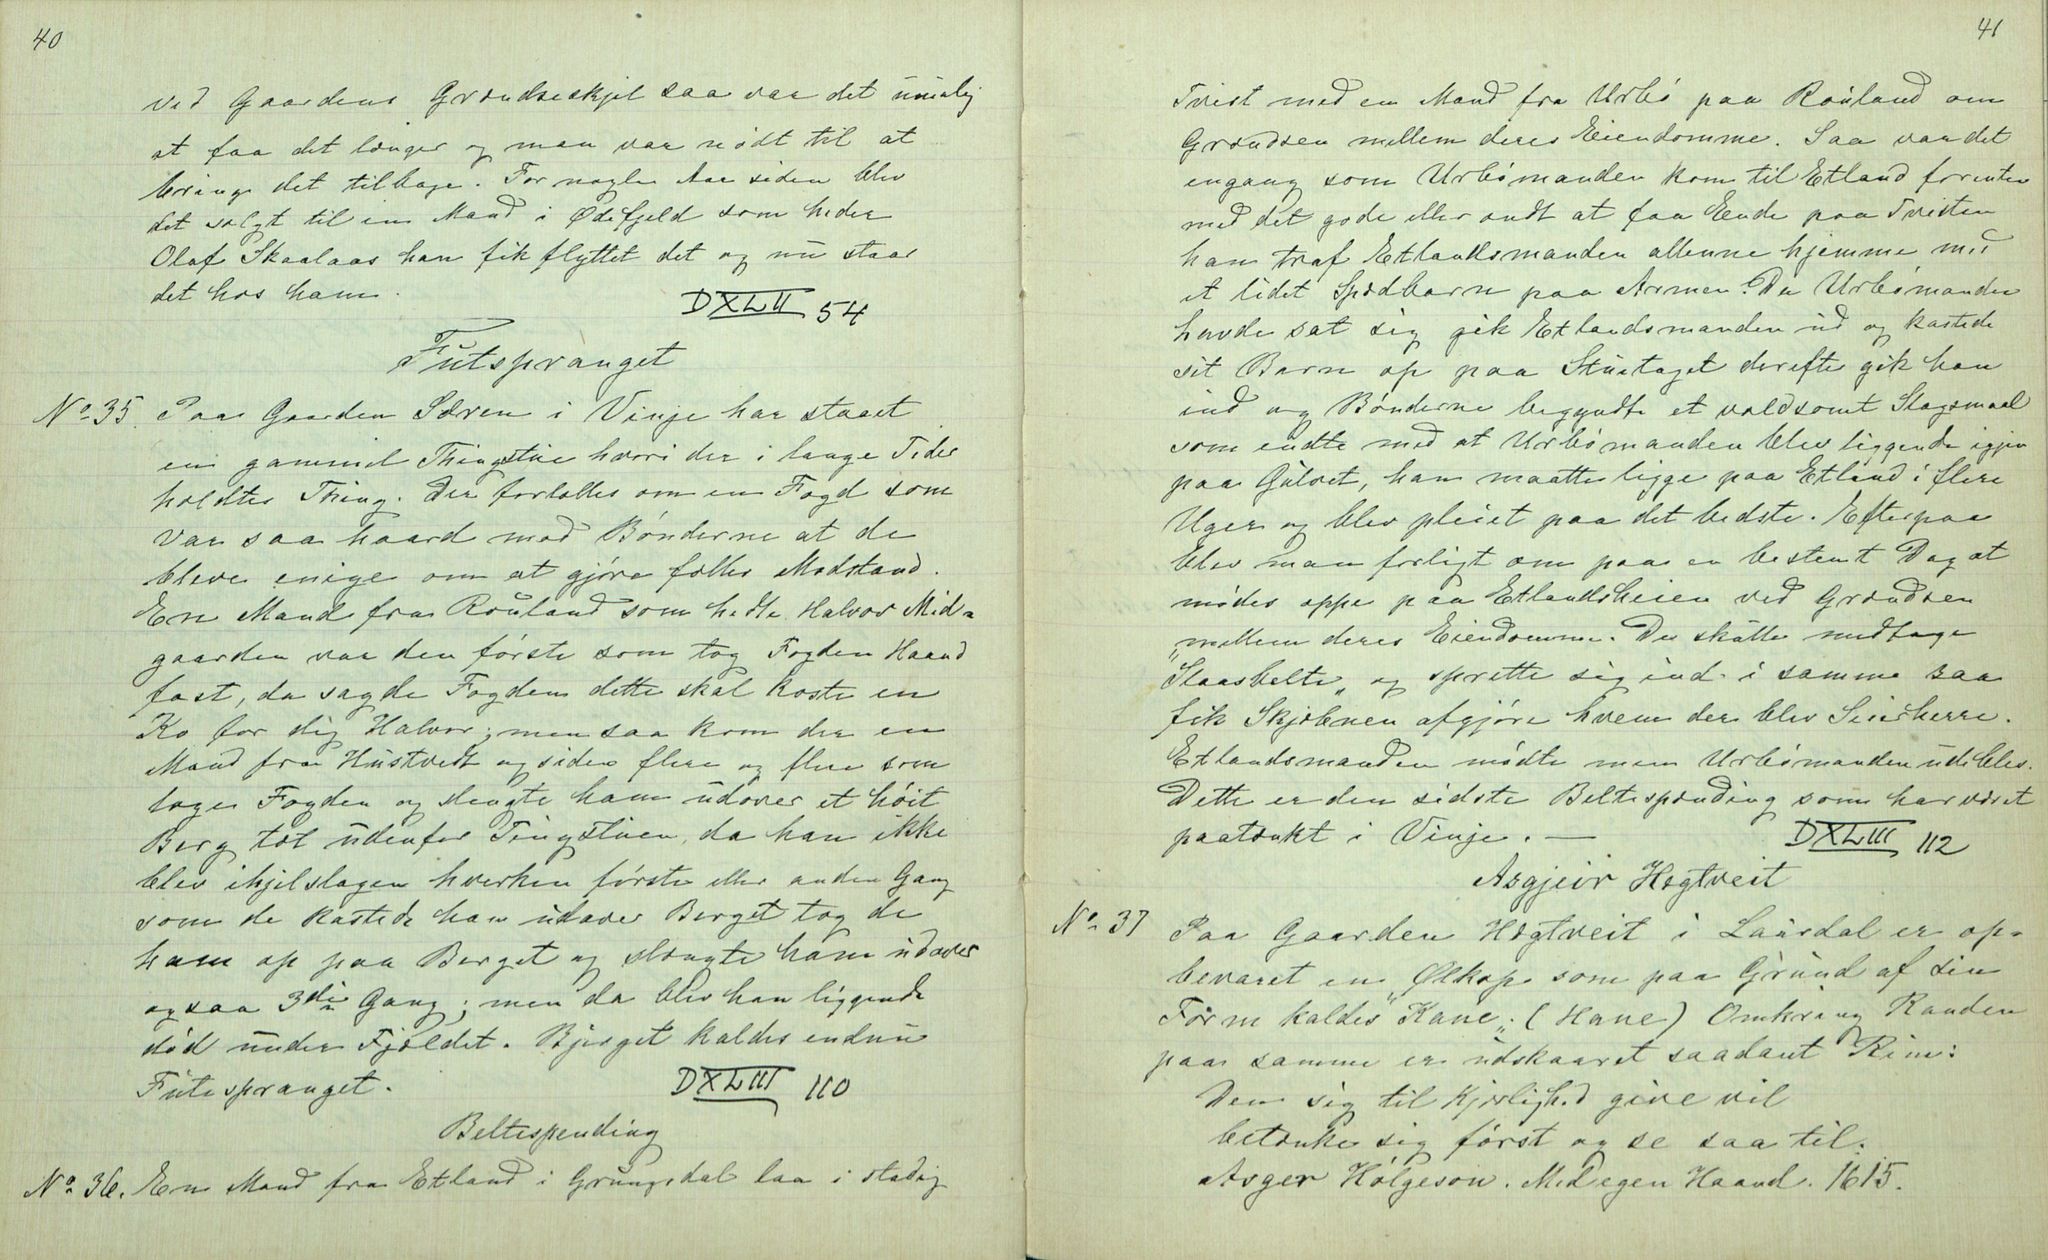 40
ved Gaardens Grændseskjel saa var det umulig
at faa det længer og man var nødt til at
bringe det tilbage. For nogle Aar siden blev
det solgt til en Mand i Ødefjeld som heder
Olaf Skaalaas han fik flyttet det og nu staar
det hos ham.
DXLII 54
Futspranget
No 35. Paa Gaarden Særen i Vinje har staaet
en gammel Thingstue hvori der i lange Tider
holdtes Thing. Der fortælles om en Fogd som
var saa haard mod Bønderne at de
bleve enige om at gjøre fælles Modstand.
En Mand fra Rauland som hedte Halvor Mid-
gaarden var den første som tog Fogden Haand
fast, da sagde Fogden dette skal koste en
Ko for dig Halvor; men saa kom der en
Mand fra Hustvedt og siden flere og flere som
toge Fogden og slengte ham udover et høit
Berg tæt udenfor Tingstuen, da han ikke
blev ihjelslagen hverken første eller anden Gang
som de kastede han udover Berget tog de
ham op paa Berget og slængte ham udover
ogsaa 3die Gang; men da blev han liggende
død under Fjeldet. Bjerget kaldes endnu
Futespranget.
DXLIII 110
Beltespending
No 36. En Mand fra Etland i Grungedal laa i stadig
41
Tvist med en Mand fra Urbø paa Rauland om
Grændsen mellem deres Eiendomme. Saa var det
engang som Urbømanden kom til Etland forenten
med det gode eller ondt at faa Ende paa Tvisten
han traf Etlandsmanden allenne hjemme med
et lidet Spædbarn paa Armen. Da Urbømanden
havde sat sig gik Etlandsmanden ud og kastede
sit Barn op paa Stuetaget derefter gik han
ind og Bønderne begyndte et voldsomt Slagsmaal
som endte med at Urbømanden blev liggende igjen
paa Gulvet, han maatte ligge paa Etland i flere
Uger og blev pleiet paa det bedste. Efterpaa
blev man forligt om paa en bestemt Dag at
mødes oppe paa Etlandsheien ved Grændsen
mellem deres Eiendomme. De skulle medtage
"Slaasbelte" og sprette sig ind i samme saa
fik Skjebnen afgjøre hvem der blev Seierherre.
Etlandsmanden mødte men Urbømanden udeblev.
Dette er den sidste Beltespænding som har været
paatænkt i Vinje. —
DXLIII 112
Asgjeir Hægtveit
No 37 Paa Gaarden Hægtveit i Laurdal er op-
bevaret en Ølkop som paa Grund af sin
Form kaldes "Kane". (Hane) Omkring Randen
paa samme er udskaaret saadant Rim:
Den sig til Kjærlighed give vil
betænke sig først og se saa til.
Asger Hølgeson. Med egen Haand. 1615.